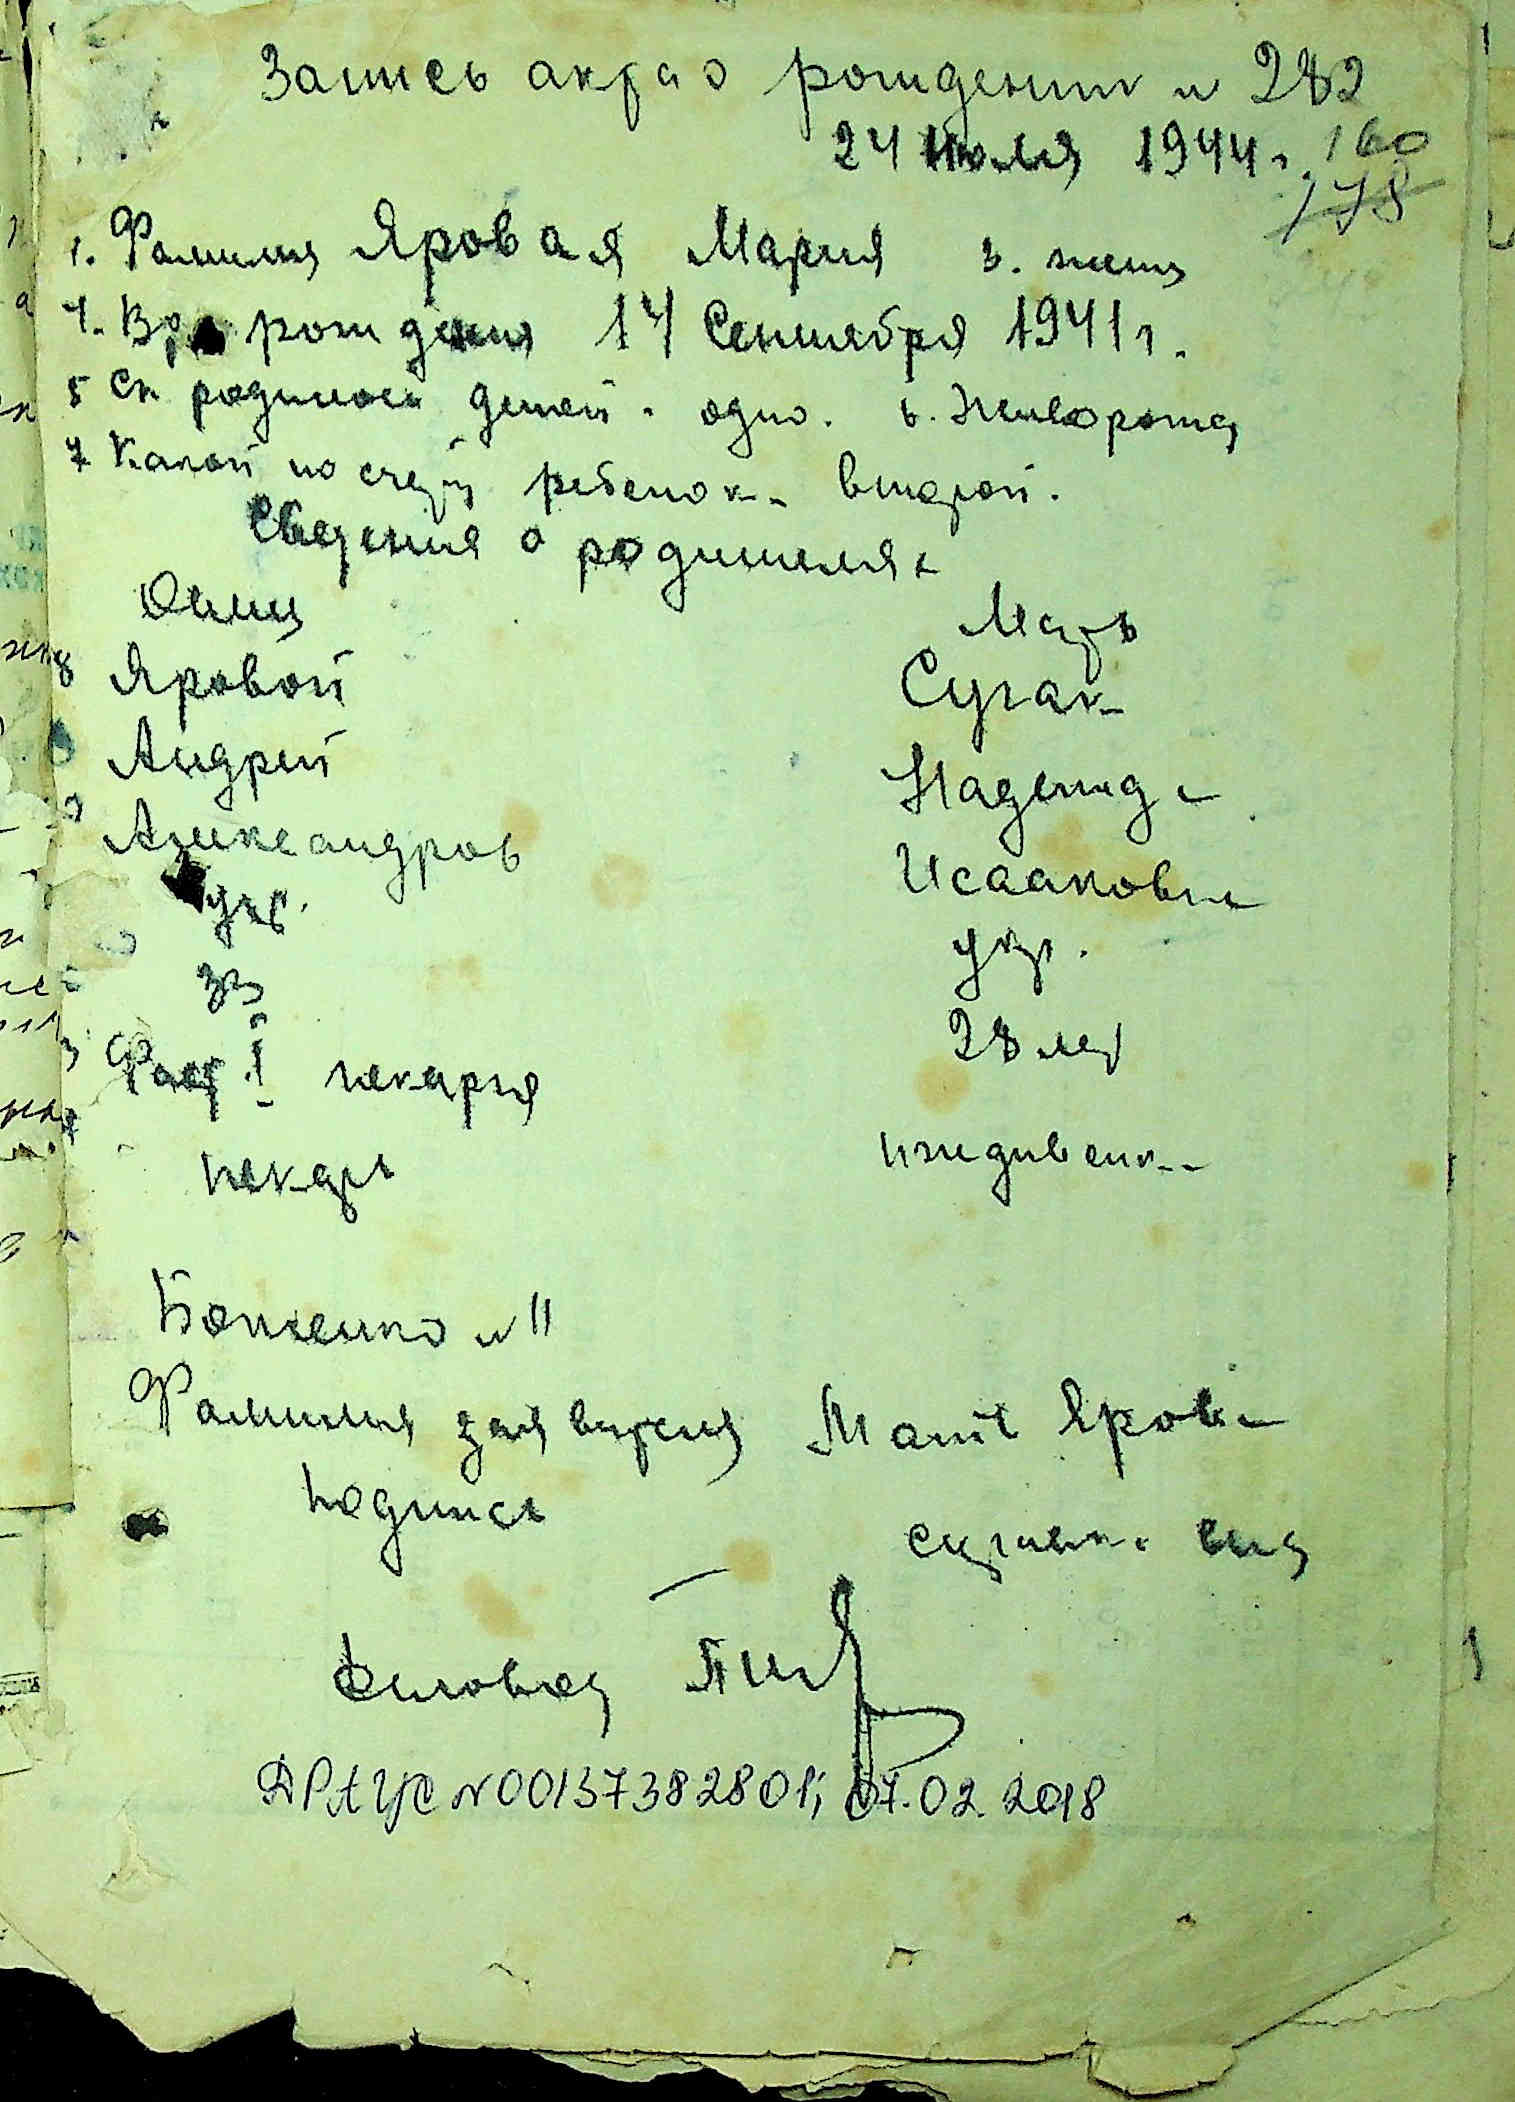 Запись акта о рождении N 282
24 Июля 1944 г. 160
178
1. Фамилия Яровая Мария 3. жен
4. Вр рождения 14 Сентября 1941 г.
5 Ск родилось детей. одно. 6. Живорожд
7 Какой по счету ребенок. второй.
Сведения о родителях
Отец Мать
8 Яровой Сугак
Андрей Надежда
Александров Исааковна
укр. укр.
33 28 лет
пекарня
пекарь иждивенка
Боженко N 11
Фамилия заявителя Мать Яровая
Подпись
Деловод
ДРАЦС N 00137382801; 07.02.2018